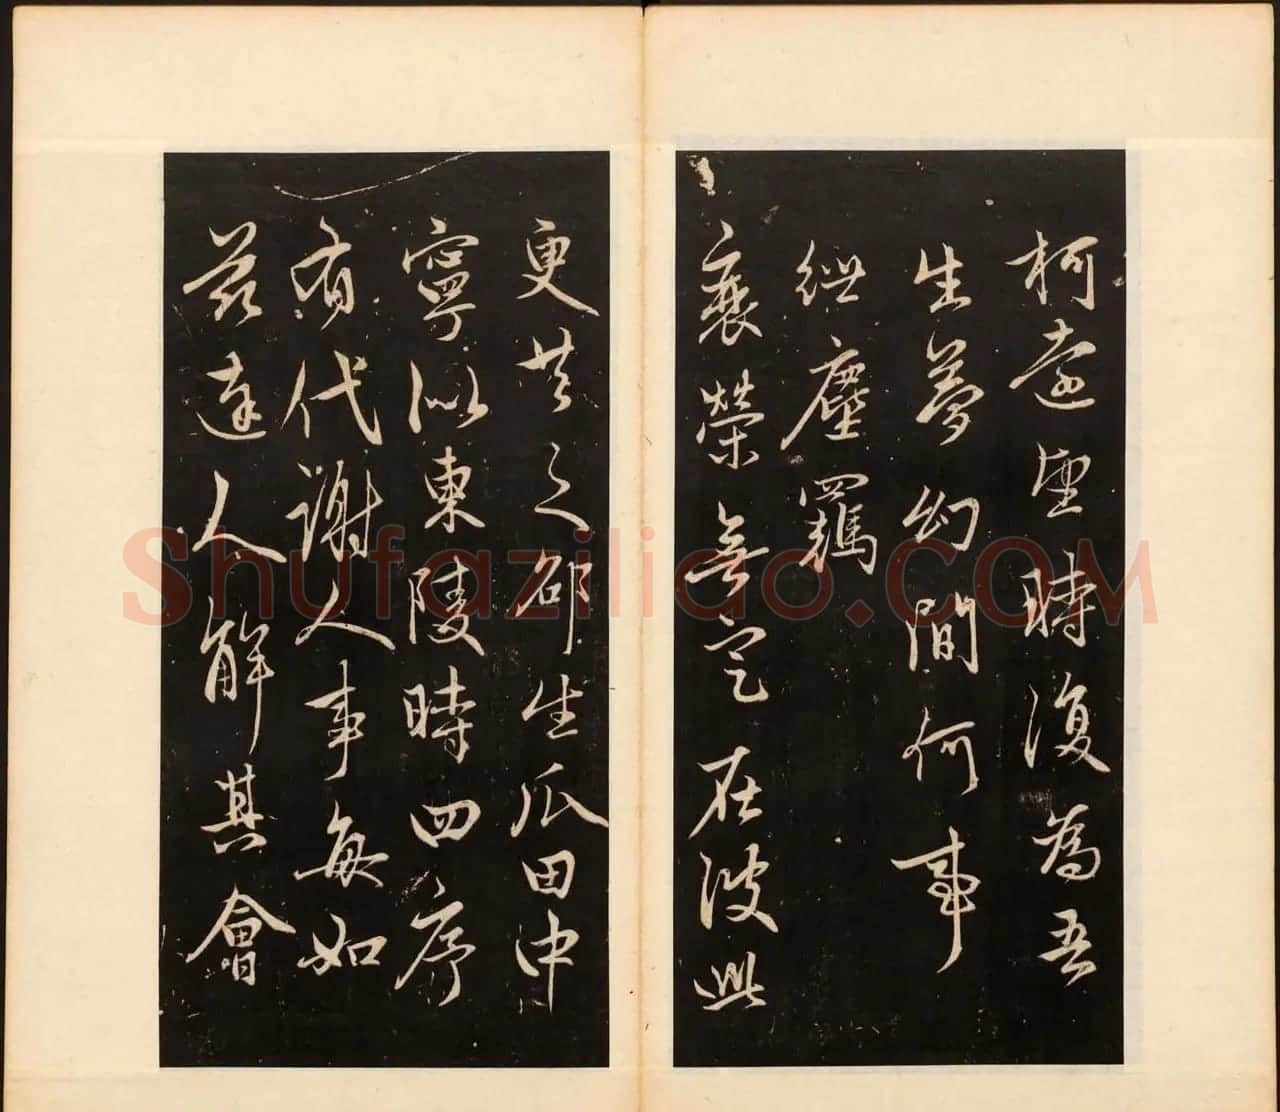 柯遠望時復為吾
生夢幻間何事
紲塵羈
衰榮無定在彼此
更共之邵生瓜田中
寧似東陵時四序
有代謝人事每如
茲達人解其會
Shufaziliao.COM